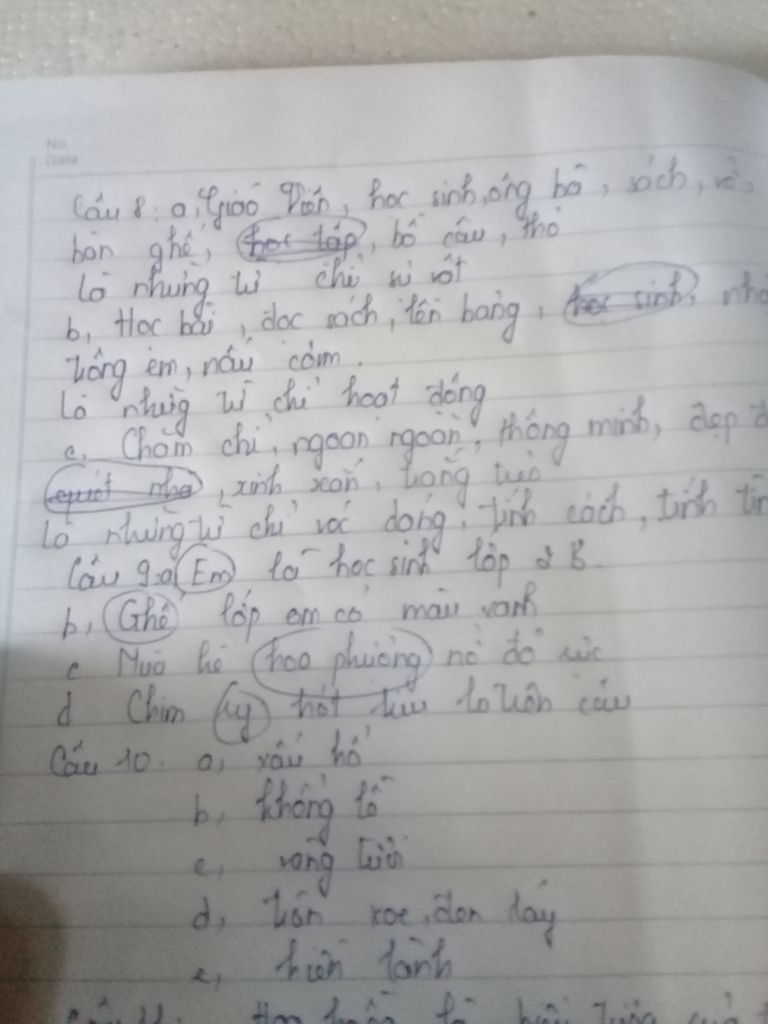 No.
Date
Câu 8: a, Giáo viên, học sinh, ông bà, sách, vở,
bàn ghế, học tập, bồ câu, thỏ
là những từ chỉ sự vật
b, Học bài, đọc sách, lên bảng, học sinh,
trông em, nấu cơm.
là những từ chỉ hoạt động
c, Chăm chỉ, ngoan ngoãn, thông minh, đẹp
quét nhà, xinh xắn, trắng trẻo
là những từ chỉ vóc dáng, tính cách, tính
Câu 9: a Em là học sinh lớp 2B.
b, Ghế lớp em có màu xanh
c Mùa hè hoa phượng nở đỏ rực
d Chim hót líu lo trên cây
Câu 10. a, xấu hổ
b, khổng lồ
c,
d, tròn xoe, đen láy
e, hiền lành